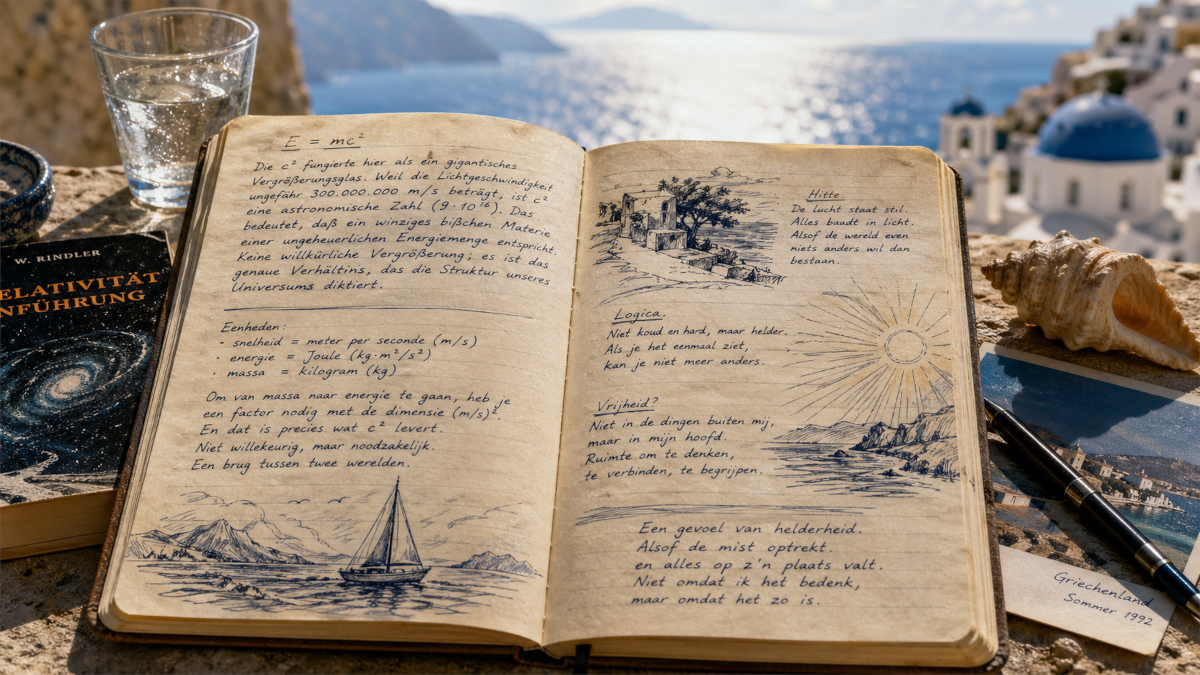 W. RINDLER
ELATIVITÄT
NFÜHRUNG
E = mc²
Die c² fungierte hier als ein gigantisches
Vergrößerungsglas. Weil die Lichtgeschwindigkeit
ungefähr 300.000.000 m/s beträgt, ist c²
eine astronomische Zahl (9·10¹⁶). Das
bedeutet, daß ein winziges bißchen Materie
einer ungeheuerlichen Energiemenge entspricht.
Keine willkürliche Vergrößerung; es ist das
genaue Verhältins, das die Struktur unseres
Universums diktiert.
Eenheden:
· snelheid = meter per seconde (m/s)
· energie = Joule (kg·m²/s²)
· massa = kilogram (kg)
Om van massa naar energie te gaan, heb je
een factor nodig met de dimensie (m/s)².
En dat is precies wat c² levert.
Niet willekeurig, maar noodzakelijk.
Een brug tussen twee werelden.
Hitte
De lucht staat stil.
Alles baadt in licht.
Alsof de wereld even
niets anders wil dan
bestaan.
Logica.
Niet koud en hard, maar helder.
Als je het eenmaal ziet,
kan je niet meer anders.
Vrijheid?
Niet in de dingen buiten mij,
maar in mijn hoofd.
Ruimte om te denken,
te verbinden, te begrijpen.
Een gevoel van helderheid.
Alsof de mist optrekt.
en alles op z'n plaats valt.
Niet omdat ik het bedenk,
maar omdat het zo is.
Griechenland
Sommer 1992